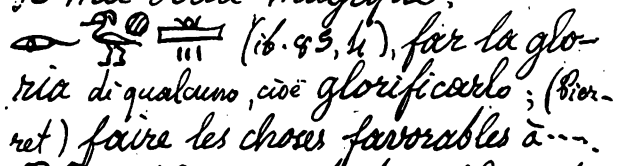 𓁹𓅜𓐍𓏛𓏥 (ib. 85, 4), far la glo-
ria di qualcuno, cioè glorificarlo; (Pier-
ret) faire les choses favorables à....